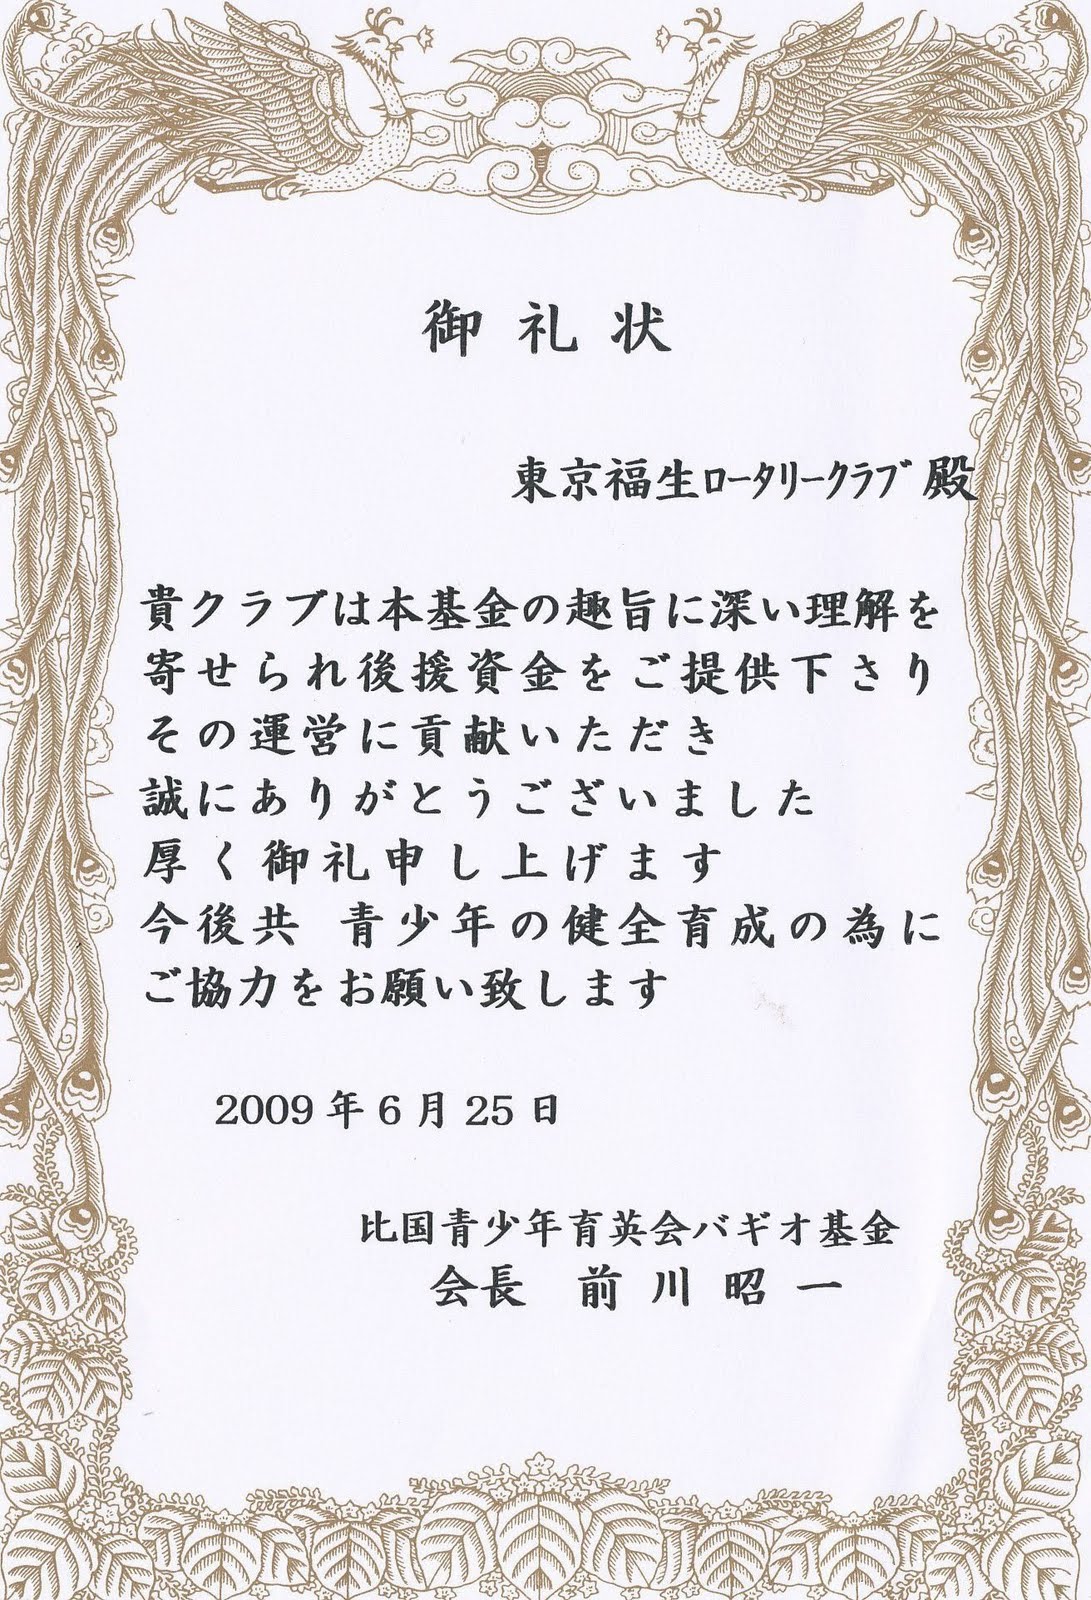 御礼状
東京福生ﾛｰﾀﾘｰｸﾗﾌﾞ殿
貴クラブは本基金の趣旨に深い理解を
寄せられ後援資金をご提供下さり
その運営に貢献いただき
誠にありがとうございました
厚く御礼申し上げます
今後共 青少年の健全育成の為に
ご協力をお願い致します
2009年6月25日
比国青少年育英会バギオ基金
会長 前川昭一